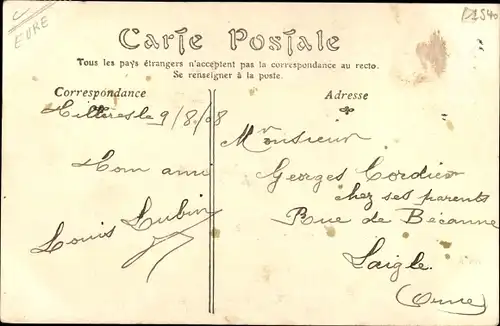 EURE
Carte Postale
Tous les pays étrangers n'acceptent pas la correspondance au recto.
Se renseigner à la poste.
Correspondance
Adresse
le 9/8/08
Mon ami
Louis Lubin
Monsieur
Georges Cordier
chez ses parents
Rue de Bécanne
Laigle
(Orne)